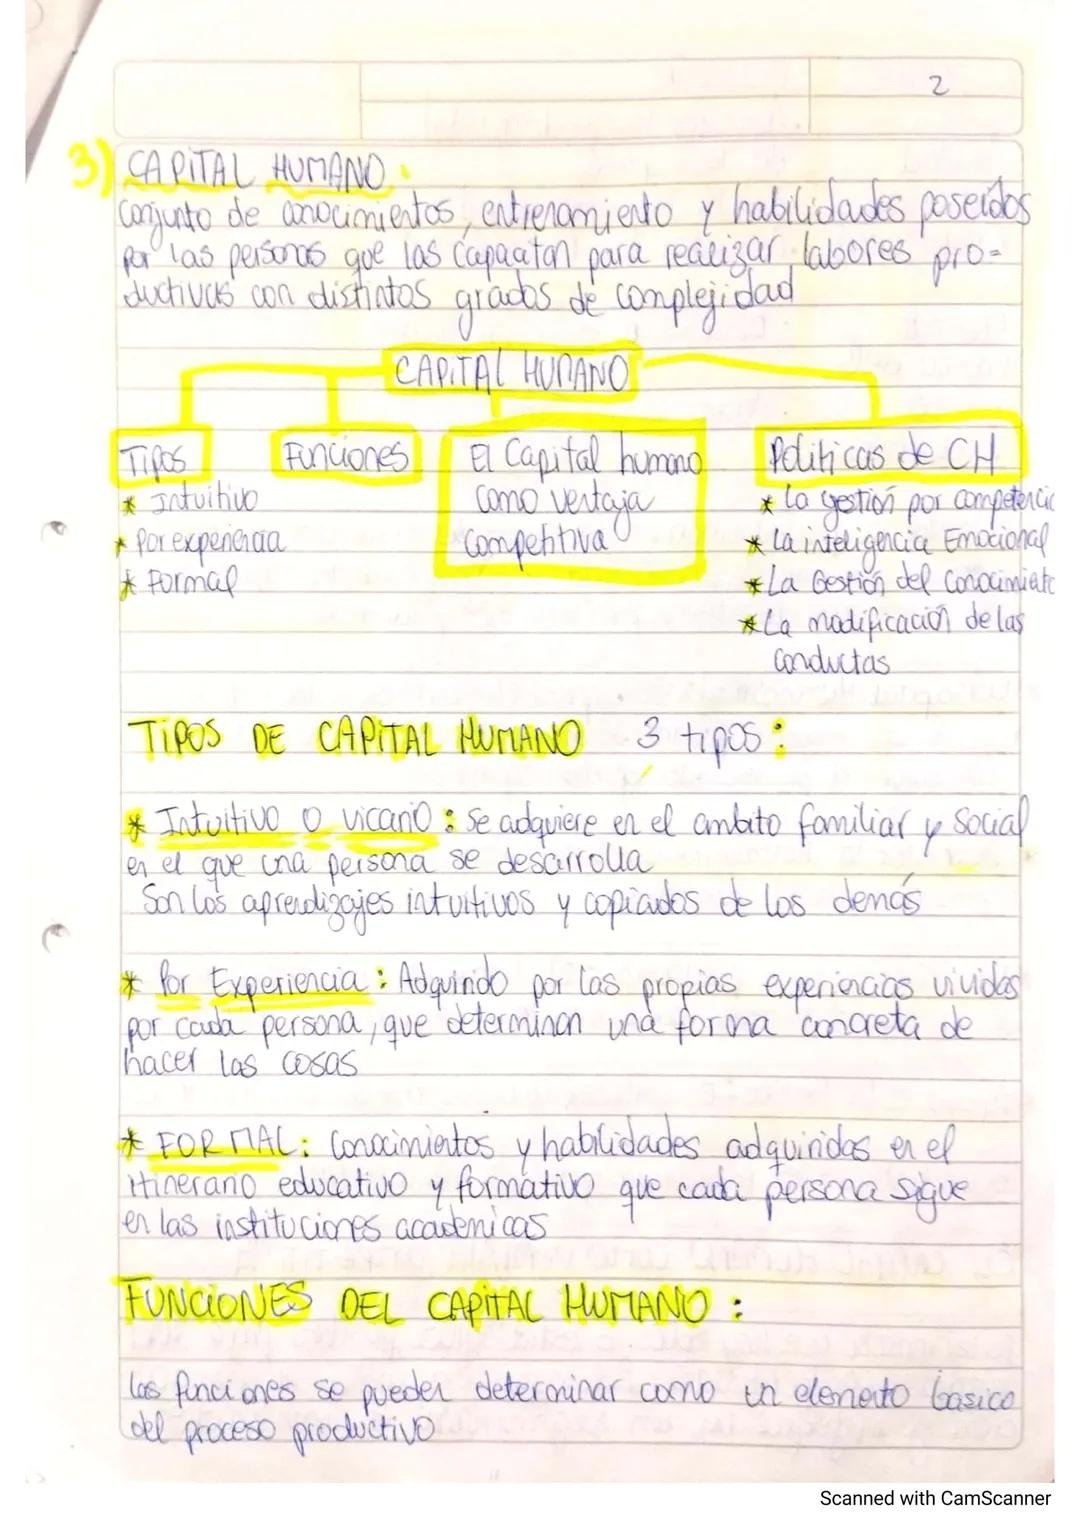 2
3) CAPITAL HUMANO:
Conjunto de conocimientos, entrenamiento y habilidades poseídos
por las personas que las capacitan para realizar labores pro-
ductivas con distintos grados de complejidad
CAPITAL HUMANO
Tipos
* Intuitivo
* Por experiencia
* Formal
Funciones
El Capital humano
como ventaja
competitiva
Politicas de CH
* La gestión por competencia
* La inteligencia Emocional
* La Gestión del conocimiento
* La modificación de las
conductas
TIPOS DE CAPITAL HUMANO 3 tipos:
* Intuitivo o vicario: se adquiere en el ambito familiar y social
en el que una persona se desarrolla
Son los aprendizajes intuitivos y copiados de los demás
* Por Experiencia: Adquirido por las propias experiencias vividas
por cada persona, que determinan una forma concreta de
hacer las cosas
* FORMAL: Conocimientos y habilidades adquiridas en el
itinerario educativo y formativo que cada persona sigue
en las instituciones academicas
FUNCIONES DEL CAPITAL HUMANO:
las funciones se pueden determinar como un elemento basico
del proceso productivo
Scanned with CamScanner